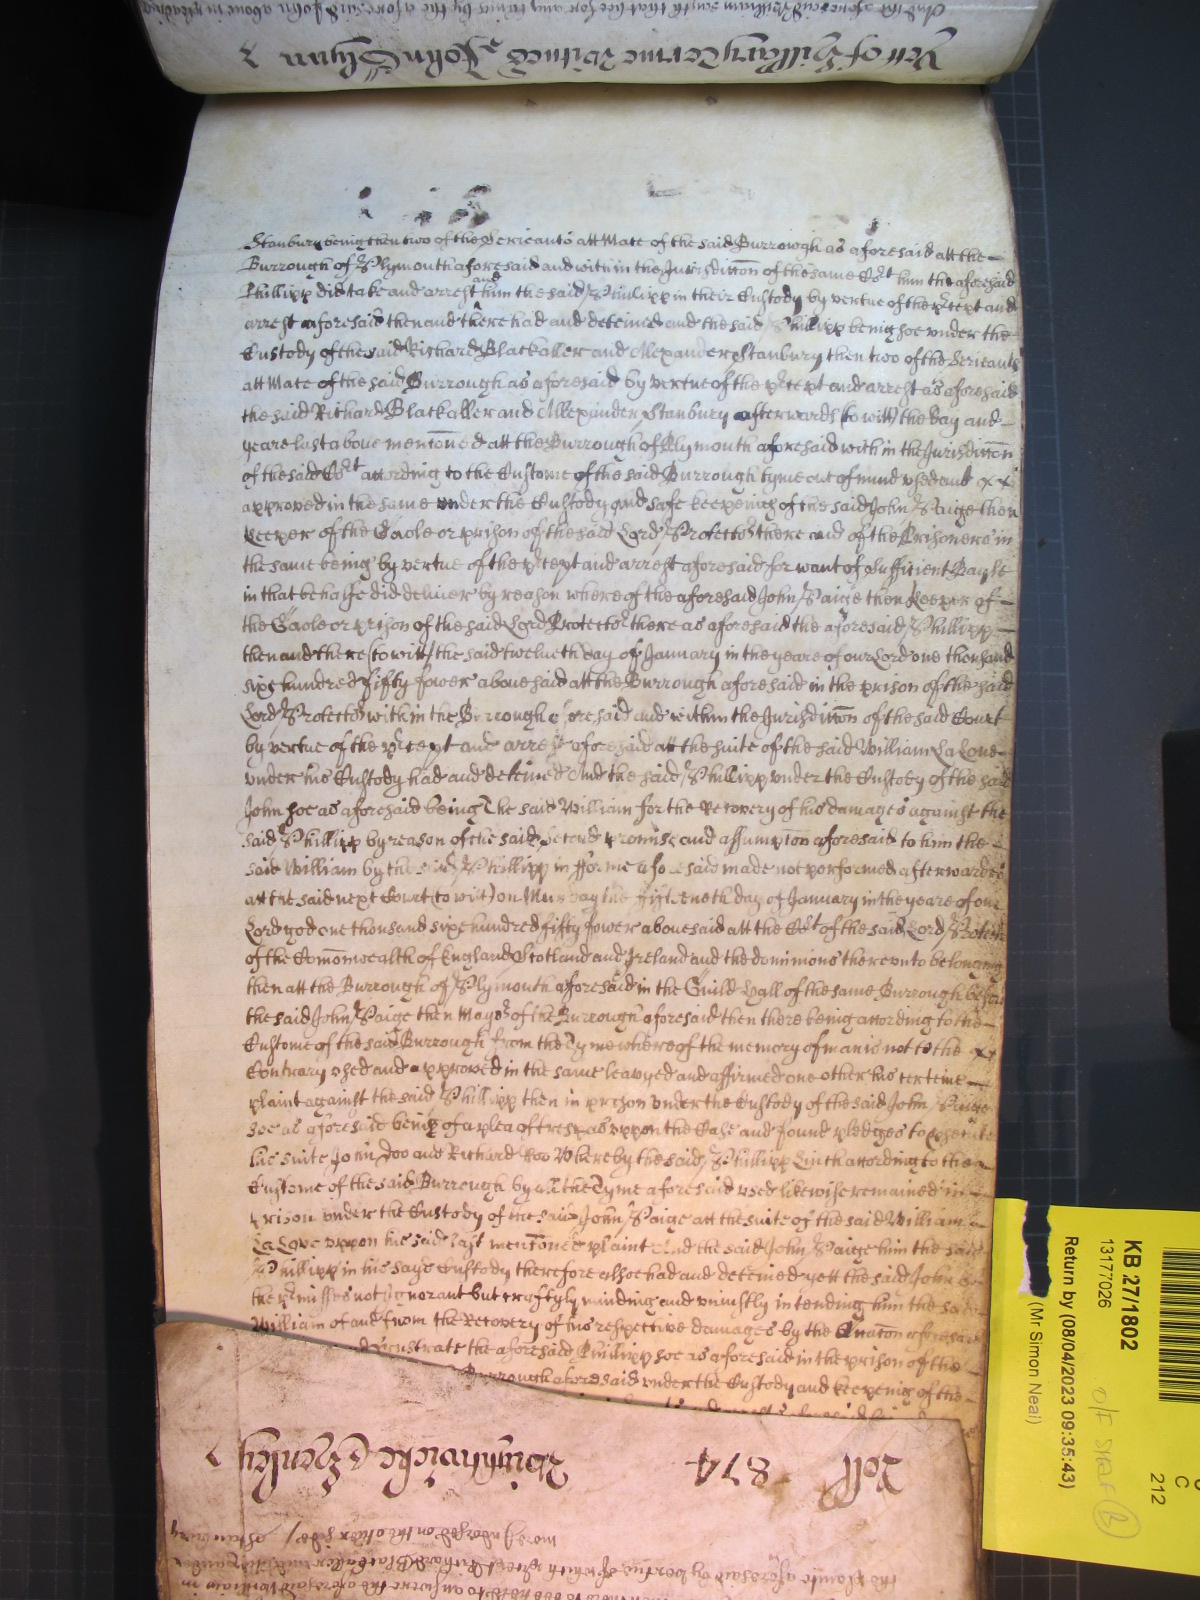 Yett of Hillary Terme Witnes John Glynn
Stanbury being then two of the Serieants att Mace of the said Burrowgh as aforesaid att the
Burrough of Plymouth aforesaid and within the Jurisdiccon of the same Cort him the aforesaid
Phillipp did take and arrest and him the said Phillipp in their Custody by vertue of the precept and
arrest aforesaid then and there had and deteined and the said Phillipp being soe under the
Custody of the said Richard Blackaller and Allexander Stanbury then two of the Serieants
att Mace of the said Burrough as aforesaid by vertue of the precept and arrest as aforesaid
the said Richard Blackaller and Allexander Stanbury afterwards (to witt) the day and
yeare last above menconed att the Burrough of Plymouth aforesaid with in the Jurisdiccon
of the said Cort according to the Custome of the said Burrough tyme out of mind used and
approved in the same under the Custody and safe keepeing of the said John Paige then
keeper of the Gaole or prison of the said Lord Protector there and of the Prisoners in
the same being by vertue of the precept and arrest aforesaid for want of sufficient Bayle
in that behalfe did deliver by reason whereof the aforesaid John Paige then Keeper of
the Gaole or prison of the said Lord Protector there as aforesaid the aforesaid Phillipp
then and there (to witt) the said twelueth day of January in the yeare of our Lord one thousand
six hundred fifty fower abovesaid att the Burrough aforesaid in the prison of the said
Lord Protector with in the Burrough aforesaid and within the Jurisdiccon of the said Court
by vertue of the precept and arrest aforesaid att the suite of the said William La Love
under his Custody had and deteined And the said Phillipp under the Custody of the said
John soe as aforesaid being The said William for the Recovery of his damages against the
said Phillipp by reason of the said promise and assumpcon aforesaid to him the
said William by the said Phillipp in forme aforesaid made not performed afterwardes
att the said next Court (to witt) on Munday the fifteeneth day of January in the yeare of our
Lord god one thousand six hundred fifty fower abovesaid att the Cort of the said Lord Protector
of the Comonwealth of England Scotland and Ireland and the dominions thereunto belonging
then att the Burrough of Plymouth aforesaid in the Guild Hall of the same Burrough before
the said John Paige then Mayor of the Burrough aforesaid then there being according to the
Custome of the said Burrough from the Tyme whereof the memory of man is not to the
Contrary used and approved in the same leavyed and affirmed one other his certeine
plaint against the said Phillipp then in prison under the Custody of the said John Paige
soe as aforesaid being of a plea of trespas uppon the Case and found pledges to prosecute
his suite John Doo and Richard Roo Whereby the said Phillipp Linch according to the
Custome of the said Burrough by all the Tyme aforesaid used likewise remained in
prison under the Custody of the said John Paige att the suite of the said William
La Love uppon his said last menconed plaint And the said John Paige him the said
Phillipp in his safe Custody therefore alsoe had and deteined yett the said John
the premisses not ignorant but craftyly minding and uniustly intending him the said
William of and from the Recovery of his respective damages by the accon aforesaid
frustrate the aforesaid Phillipp soe as aforesaid in the prison of the
Burrough aforesaid under the Custody and keepeing of the
Roll 874 Wightwicke Henley
more Indorsed on the other side / Stanbury
KB 27/1802
13177026
Return by (08/04/2023 09:35:43)
(Mr Simon Neal)
O/F SHELF B
C
212